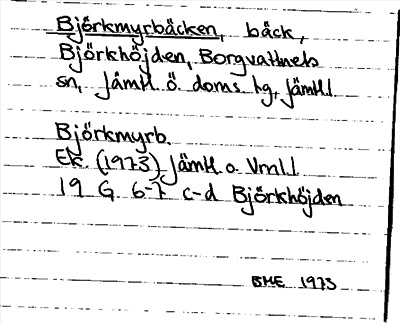 Björkmyrbäcken, bäck,
Björkhöjden, Borgvattnets
sn, Jämtl. ö. doms. hg, Jämtl.l.
Björkmyrb.
Ek. (1973) Jämtl. o. Vrnl.l.
19 G 6-7 c-d Björkhöjden
BHE 1973